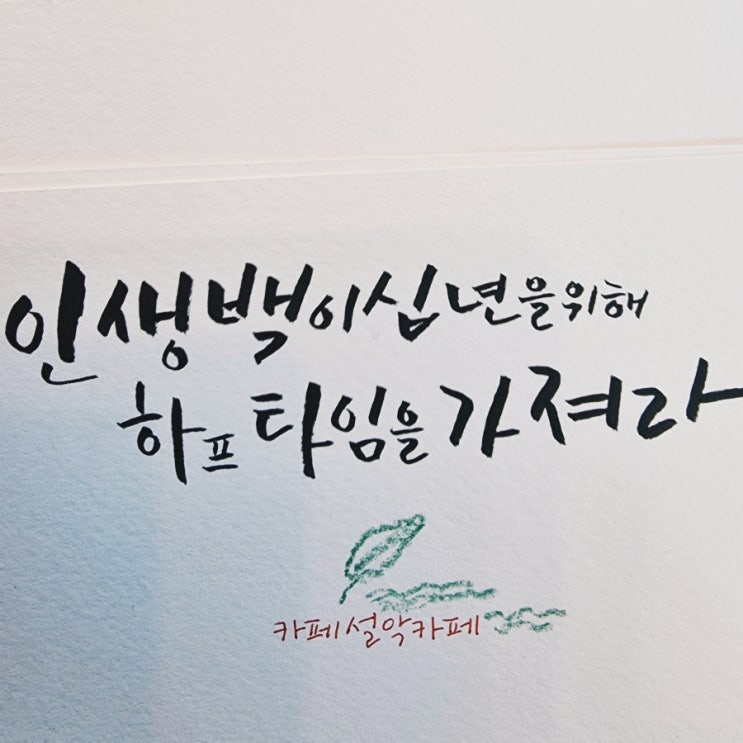 인생백이십년을위해
하프타임을가져라
카페설악카페